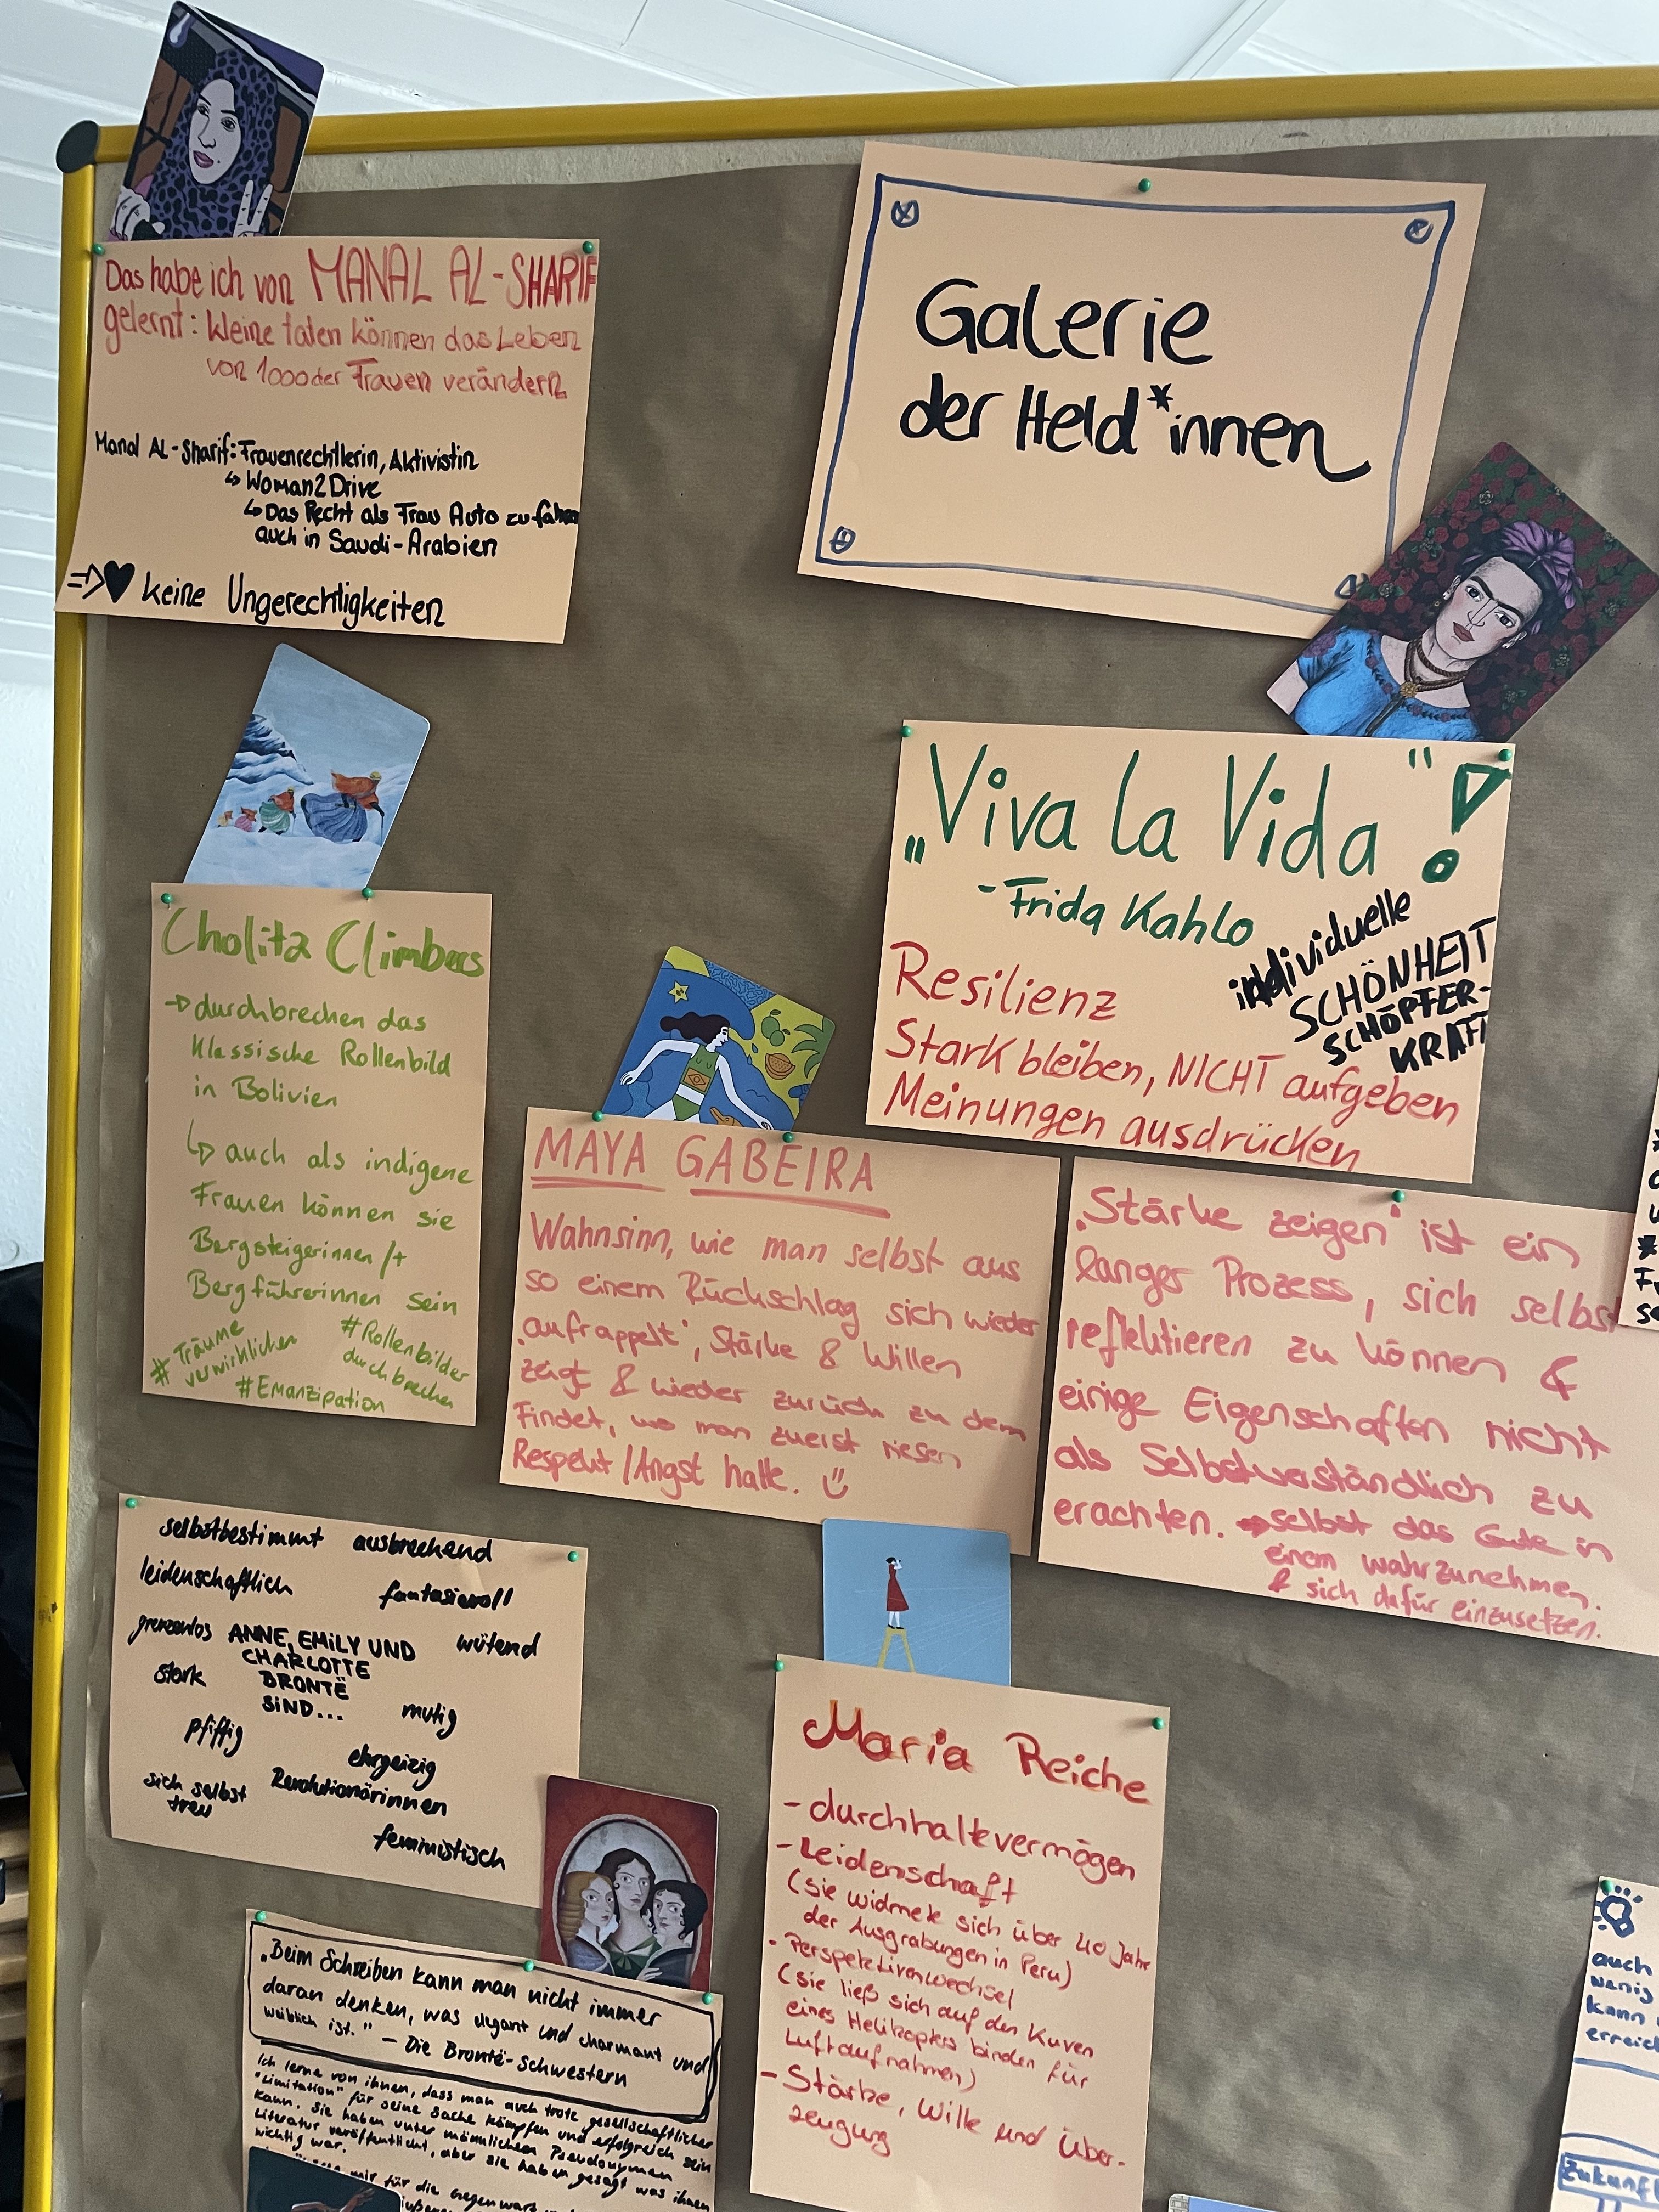 Das habe ich von MANAL AL-SHARIF
gelernt: kleine taten können das Leben
von 1000der Frauen verändern
Manal AL-Sharif: Frauenrechtlerin, Aktivistin
↳ Woman2Drive
↳ Das Recht als Frau Auto zu fahren
auch in Saudi-Arabien
=> ♥ keine Ungerechtigkeiten
Galerie
der Held*innen
„Viva la Vida"!
- Frida Kahlo
individuelle
SCHÖNHEIT
SCHÖPFER-
KRAFT
Resilienz
Stark bleiben, NICHT aufgeben
Meinungen ausdrücken
Cholita Climbers
→ durchbrechen das
klassische Rollenbild
in Bolivien
↳ auch als indigene
Frauen können sie
Bergsteigerinnen/+
Bergführerinnen sein
# Träume
verwirklichen
# Rollenbilder
durchbrechen
# Emanzipation
MAYA GABEIRA
Wahnsinn, wie man selbst aus
so einem Rückschlag sich wieder
'aufrappelt', Stärke & Willen
zeigt & wieder zurück zu dem
findet, wo man zuerst riesen
Respekt/Angst hatte.
„Stärke zeigen" ist ein
langer Prozess, sich selbst
reflektieren zu können &
einige Eigenschaften nicht
als Selbstverständlich zu
erachten. → selbst das Gute in
einem wahrzunehmen.
& sich dafür einzusetzen.
selbstbestimmt ausbrechend
leidenschaftlich fantasievoll
grenzenlos ANNE, EMILY UND wütend
CHARLOTTE
stark BRONTË
SIND... mutig
pfiffig
ehrgeizig
sich selbst Revolutionärinnen
treu
feministisch
Maria Reiche
- durchhaltevermögen
- Leidenschaft
(sie widmete sich über 40 Jahr
der Ausgrabungen in Peru)
- Perspektivenwechsel
(sie ließ sich auf den Kuven
eines Helikopters binden für
Luftaufnahmen)
- Stärke, Wille und Über-
zeugung
„Beim Schreiben kann man nicht immer
daran denken, was elegant und charmant und
weiblich ist." – Die Brontë-Schwestern
Ich lerne von ihnen, dass man auch trotz gesellschaftlicher
"Limitation" für seine Sache kämpfen und erfolgreich sein
kann. Sie haben unter männlichem Pseudonymen
Literatur veröffentlicht, aber sie haben gesagt was ihnen
wichtig war.
mir für die Gegenwart
auch
wenig
kann
erreich
Zukunft